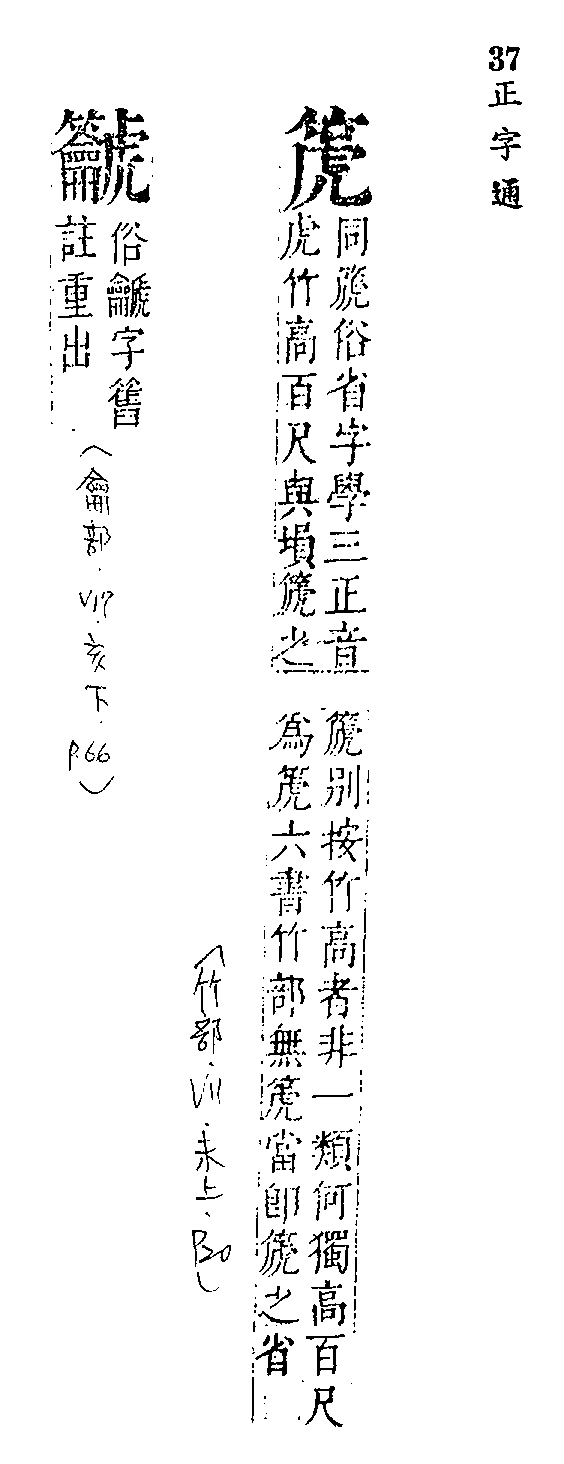 37正字通
箎
同篪俗省字學三正音
虎竹高百尺與塤篪之
篪別按竹高者非一類何獨高百尺
為箎六書竹部無箎當即篪之省
(竹部·V11·未上·P20)
俗䶵字舊
註重出
(龠部·V17·亥下·P.66)